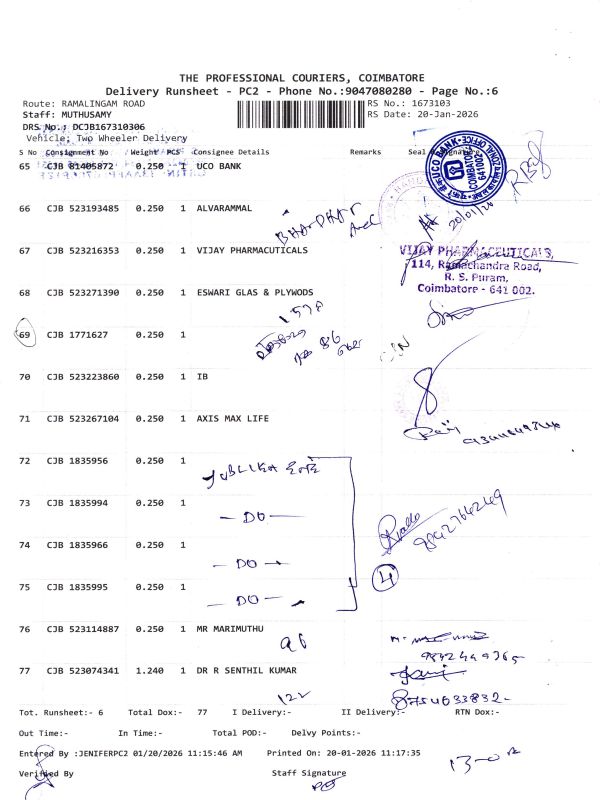 THE PROFESSIONAL COURIERS, COIMBATORE
Delivery Runsheet - PC2 - Phone No.:9047080280 - Page No.:6
Route: RAMALINGAM ROAD
RS No.: 1673103
Staff: MUTHUSAMY
RS Date: 20-Jan-2026
DRS No.: DCJB167310306
Vehicle: Two Wheeler Delivery
S No Consignment No Weight PCS Consignee Details Remarks Seal
65 CJB 81405872 0.250 1 UCO BANK
UCO BANK
COIMBATORE
641002
ZONAL OFFICE
20/01/26
66 CJB 523193485 0.250 1 ALVARAMMAL
67 CJB 523216353 0.250 1 VIJAY PHARMACUTICALS
VIJAY PHARMACEUTICALS,
114, Ramachandra Road,
R. S. Puram,
Coimbatore - 641 002.
68 CJB 523271390 0.250 1 ESWARI GLAS & PLYWODS
69 CJB 1771627 0.250 1
86
70 CJB 523223860 0.250 1 IB
71 CJB 523267104 0.250 1 AXIS MAX LIFE
72 CJB 1835956 0.250 1
73 CJB 1835994 0.250 1
- DO -
74 CJB 1835966 0.250 1
- DO -
4
75 CJB 1835995 0.250 1
- DO -
76 CJB 523114887 0.250 1 MR MARIMUTHU
77 CJB 523074341 1.240 1 DR R SENTHIL KUMAR
122
Tot. Runsheet:- 6 Total Dox:- 77 I Delivery:- II Delivery:- RTN Dox:-
Out Time:- In Time:- Total POD:- Delvy Points:-
Entered By :JENIFERPC2 01/20/2026 11:15:46 AM Printed On: 20-01-2026 11:17:35
Verified By Staff Signature